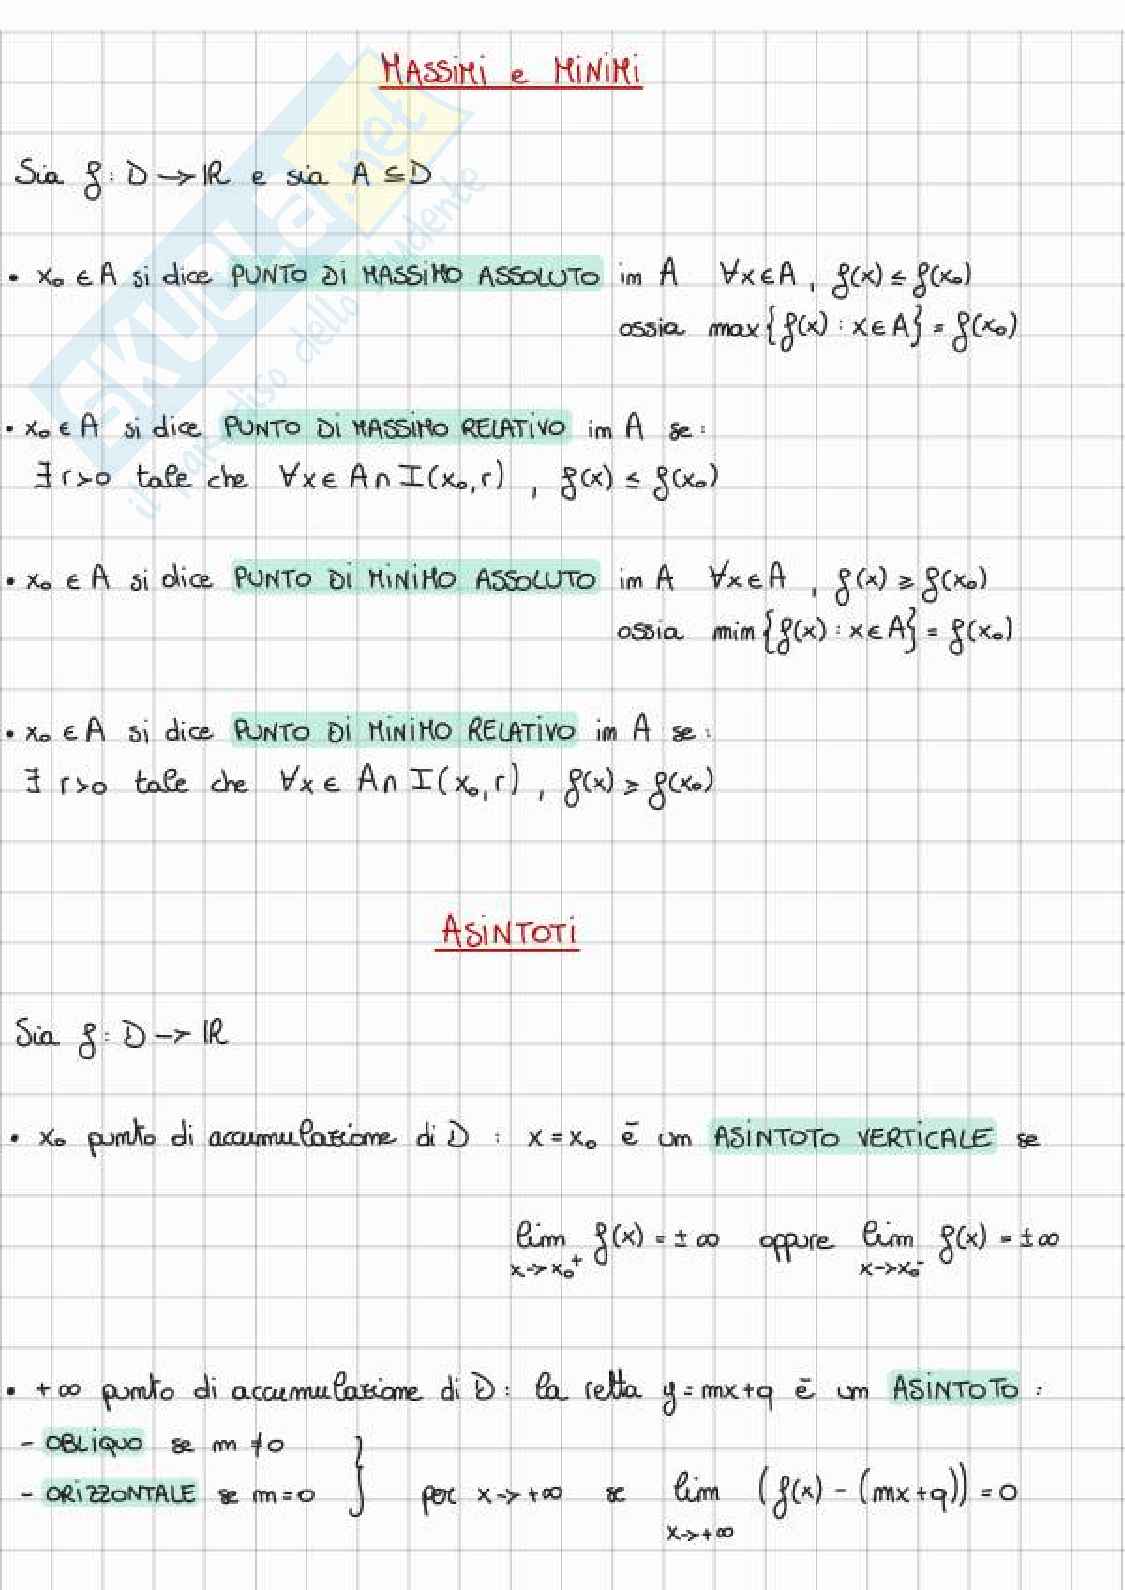 MASSIMI e MINIMI
Sia f: D → ℝ e sia A ⊆ D
• x₀ ∈ A si dice PUNTO DI MASSIMO ASSOLUTO in A ∀x ∈ A, f(x) ≤ f(x₀)
ossia max{f(x) : x ∈ A} = f(x₀)
• x₀ ∈ A si dice PUNTO DI MASSIMO RELATIVO in A se:
∃ r>0 tale che ∀x ∈ A ∩ I(x₀, r), f(x) ≤ f(x₀)
• x₀ ∈ A si dice PUNTO DI MINIMO ASSOLUTO in A ∀x ∈ A, f(x) ≥ f(x₀)
ossia min{f(x) : x ∈ A} = f(x₀)
• x₀ ∈ A si dice PUNTO DI MINIMO RELATIVO in A se:
∃ r>0 tale che ∀x ∈ A ∩ I(x₀, r), f(x) ≥ f(x₀)
SKUOLA.net
il paradiso dello studente
ASINTOTI
Sia f: D → ℝ
• x₀ punto di accumulazione di D : x = x₀ è un ASINTOTO VERTICALE se
lim f(x) = ± ∞ oppure lim f(x) = ± ∞
x→x₀⁺ x→x₀⁻
• +∞ punto di accumulazione di D: la retta y = mx+q è un ASINTOTO :
- OBLIQUO se m ≠ 0
- ORIZZONTALE se m = 0 } per x → +∞ se lim (f(x) - (mx+q)) = 0
x→+∞